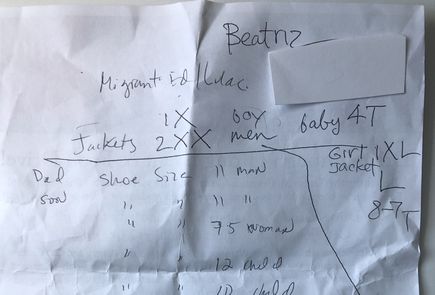 Beatriz
Migrant Ed
1X boy baby 4T
Jackets 2XX men
Girl 1XL
jacket L
8-7T
Dad Shoe Size 11 man
son " " 11 "
" " 7 5 woman
" " 12 child
" " child